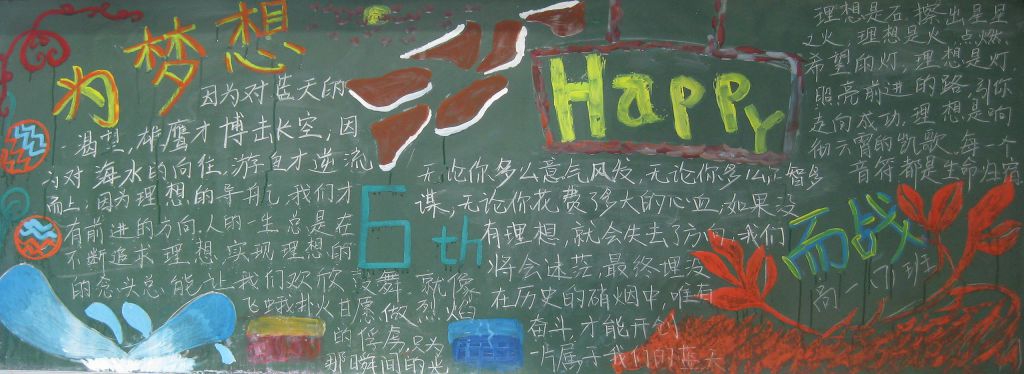 为梦想
因为对蓝天的
渴想,雄鹰才搏击长空,因
为对海水的向往,游鱼才逆流
而上,因为理想的导航,我们才
有前进的方向.人的一生总是在
不断追求理想,实现理想的
的念头总能让我们欢欣鼓舞 就像
飞蛾扑火甘愿做烈焰
的俘虏,只为
那瞬间的光
6th
Happy
无论你多么意气风发,无论你多么足智多
谋,无论你花费了多大的心血,如果没
有理想,就会失去了方向,我们
将会迷茫,最终埋没
在历史的硝烟中,唯有
奋斗才能开创
一片属于我们的蓝天
理想是石,擦出星星
之火,理想是火,点燃
希望的灯,理想是灯
照亮前进的路,到你
走向成功,理想是响
彻云霄的凯歌,每一个
音符都是生命
而战
高一 班